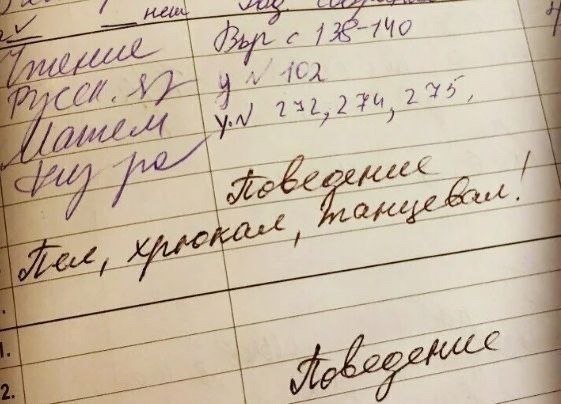 нет
Чтение Выр с 138-140
Русск. яз у № 102
Матем у. № 272, 274, 275,
Физ ра
Поведение
Пел, хрюкал, танцевал!
1.
Поведение
2.